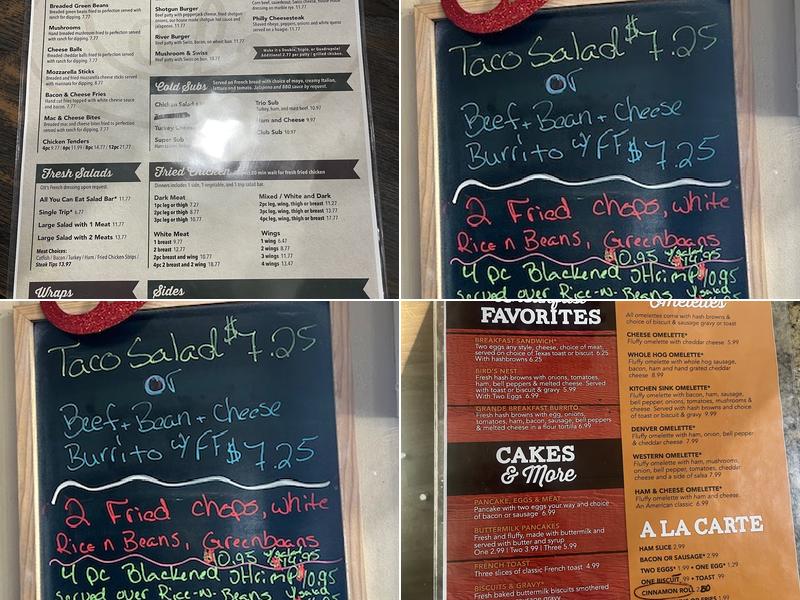 Breaded Green Beans
Breaded green beans fried to perfection served with ranch for dipping. 7.77
Mushrooms
Hand breaded mushrooms fried to perfection with ranch for dipping. 7.77
Cheese Balls
Breaded cheddar balls fried to perfection served with ranch for dipping. 7.77
Mozzarella Sticks
Breaded and fried mozzarella cheese sticks served with marinara for dipping. 8.77
Bacon & Cheese Fries
Hand cut fries topped with white cheese sauce and bacon. 7.77
Mac & Cheese Bites
Breaded mac and cheese bites fried to perfection served with ranch for dipping. 7.77
Chicken Tenders
4pc 9.77 / 6pc 11.99 / 8pc 14.77 / 12pc 21.77
Fresh Salads
Add dressing upon request.
All You Can Eat Salad Bar* 11.77
Single Trip* 6.77
Large Salad with 1 Meat 11.77
Large Salad with 2 Meats 13.77
Meat Choices:
Catfish / Bacon / Turkey / Ham / Fried Chicken Strips /
Steak Tips 13.97
Wraps
Shotgun Burger
River Burger
Beef patty with Swiss, Bacon, on wheat bun. 11.77
Mushroom & Swiss
Beef patty with Swiss on bun. 10.77
Philly Cheesesteak
Make it a Double, Triple, or Quadruple!
Additional 2.77 per patty / grilled chicken.
Cold Subs
Served on French bread with choice of mayo, creamy Italian,
lettuce and tomato. Jalapeno and BBQ sauce by request.
Chicken Salad
Super Sub
Trio Sub
Turkey, ham, and roast beef. 10.97
Ham and Cheese 9.97
Club Sub 10.97
Fried Chicken
20 min wait for fresh fried chicken
Dinners includes 1 side, 1 vegetable, and 1 trip salad bar.
Dark Meat
1pc leg or thigh 7.27
2pc leg or thigh 8.77
3pc leg or thigh 10.77
White Meat
1 breast 9.77
2 breast 12.77
2pc breast and wing 10.77
4pc 2 breast and 2 wing 18.77
Mixed / White and Dark
2pc leg, wing, thigh or breast 11.27
3pc leg, wing, thigh, or breast 13.77
4pc leg, wing, thigh or breast 17.77
Wings
1 wing 6.47
2 wings 8.77
3 wings 11.77
4 wings 13.47
Sides
Taco Salad $7.25
or
Beef + Bean + Cheese
Burrito w/ FF $7.25
2 Fried chops, white
Rice n Beans, Greenbeans
$10.95
4 pc Blackened Shrimp $10.95
served over Rice-n-Beans
Taco Salad $7.25
or
Beef + Bean + Cheese
Burrito w/ FF $7.25
2 Fried chops, white
Rice n Beans, Greenbeans
$10.95
4 pc Blackened Shrimp $10.95
served over Rice-n-Beans
FAVORITES
BREAKFAST SANDWICH*
Two eggs any style, cheese, choice of meat,
served on choice of Texas toast or biscuit 6.25
With hashbrowns 6.25
BIRD'S NEST
Fresh hash browns with onions, tomatoes,
ham, bell peppers & melted cheese. Served
with toast or biscuit & gravy 5.99
With Two Eggs 6.99
GRANDE BREAKFAST BURRITO
Fresh hash browns with egg, onions,
tomatoes, ham, bacon, sausage, bell peppers
& melted cheese in a flour tortilla 6.99
CAKES
& More
PANCAKE, EGGS & MEAT
Pancake with two eggs your way and choice
of bacon or sausage 6.99
BUTTERMILK PANCAKES
Fresh and fluffy, made with buttermilk and
served with butter and syrup
One 2.99 | Two 3.99 | Three 5.99
FRENCH TOAST
Three slices of classic French toast 4.99
BISCUITS & GRAVY
Fresh baked buttermilk biscuits smothered
Omelettes
All omelettes come with hash browns and
choice of biscuit & sausage gravy or toast
CHEESE OMELETTE*
Fluffy omelette with cheddar cheese 5.99
WHOLE HOG OMELETTE*
Fluffy omelette with whole hog sausage,
bacon, ham and hand grated cheddar
cheese 8.99
KITCHEN SINK OMELETTE*
Fluffy omelette with bacon, ham, sausage,
bell pepper, onions, tomatoes, mushrooms &
cheese. Served with hash browns and choice
of toast or biscuit & gravy 9.99
DENVER OMELETTE*
Fluffy omelette with ham, onion, bell pepper
& cheddar cheese 7.99
WESTERN OMELETTE*
Fluffy omelette with ham, mushrooms,
onion, bell pepper, tomatoes, cheddar
cheese and a side of salsa 7.99
HAM & CHEESE OMELETTE*
Fluffy omelette with ham and cheese.
An American classic 6.99
A LA CARTE
HAM SLICE 2.99
BACON OR SAUSAGE* 2.99
TWO EGGS* 1.99 • ONE EGG* 1.29
ONE BISCUIT .99 • TOAST .99
CINNAMON ROLL